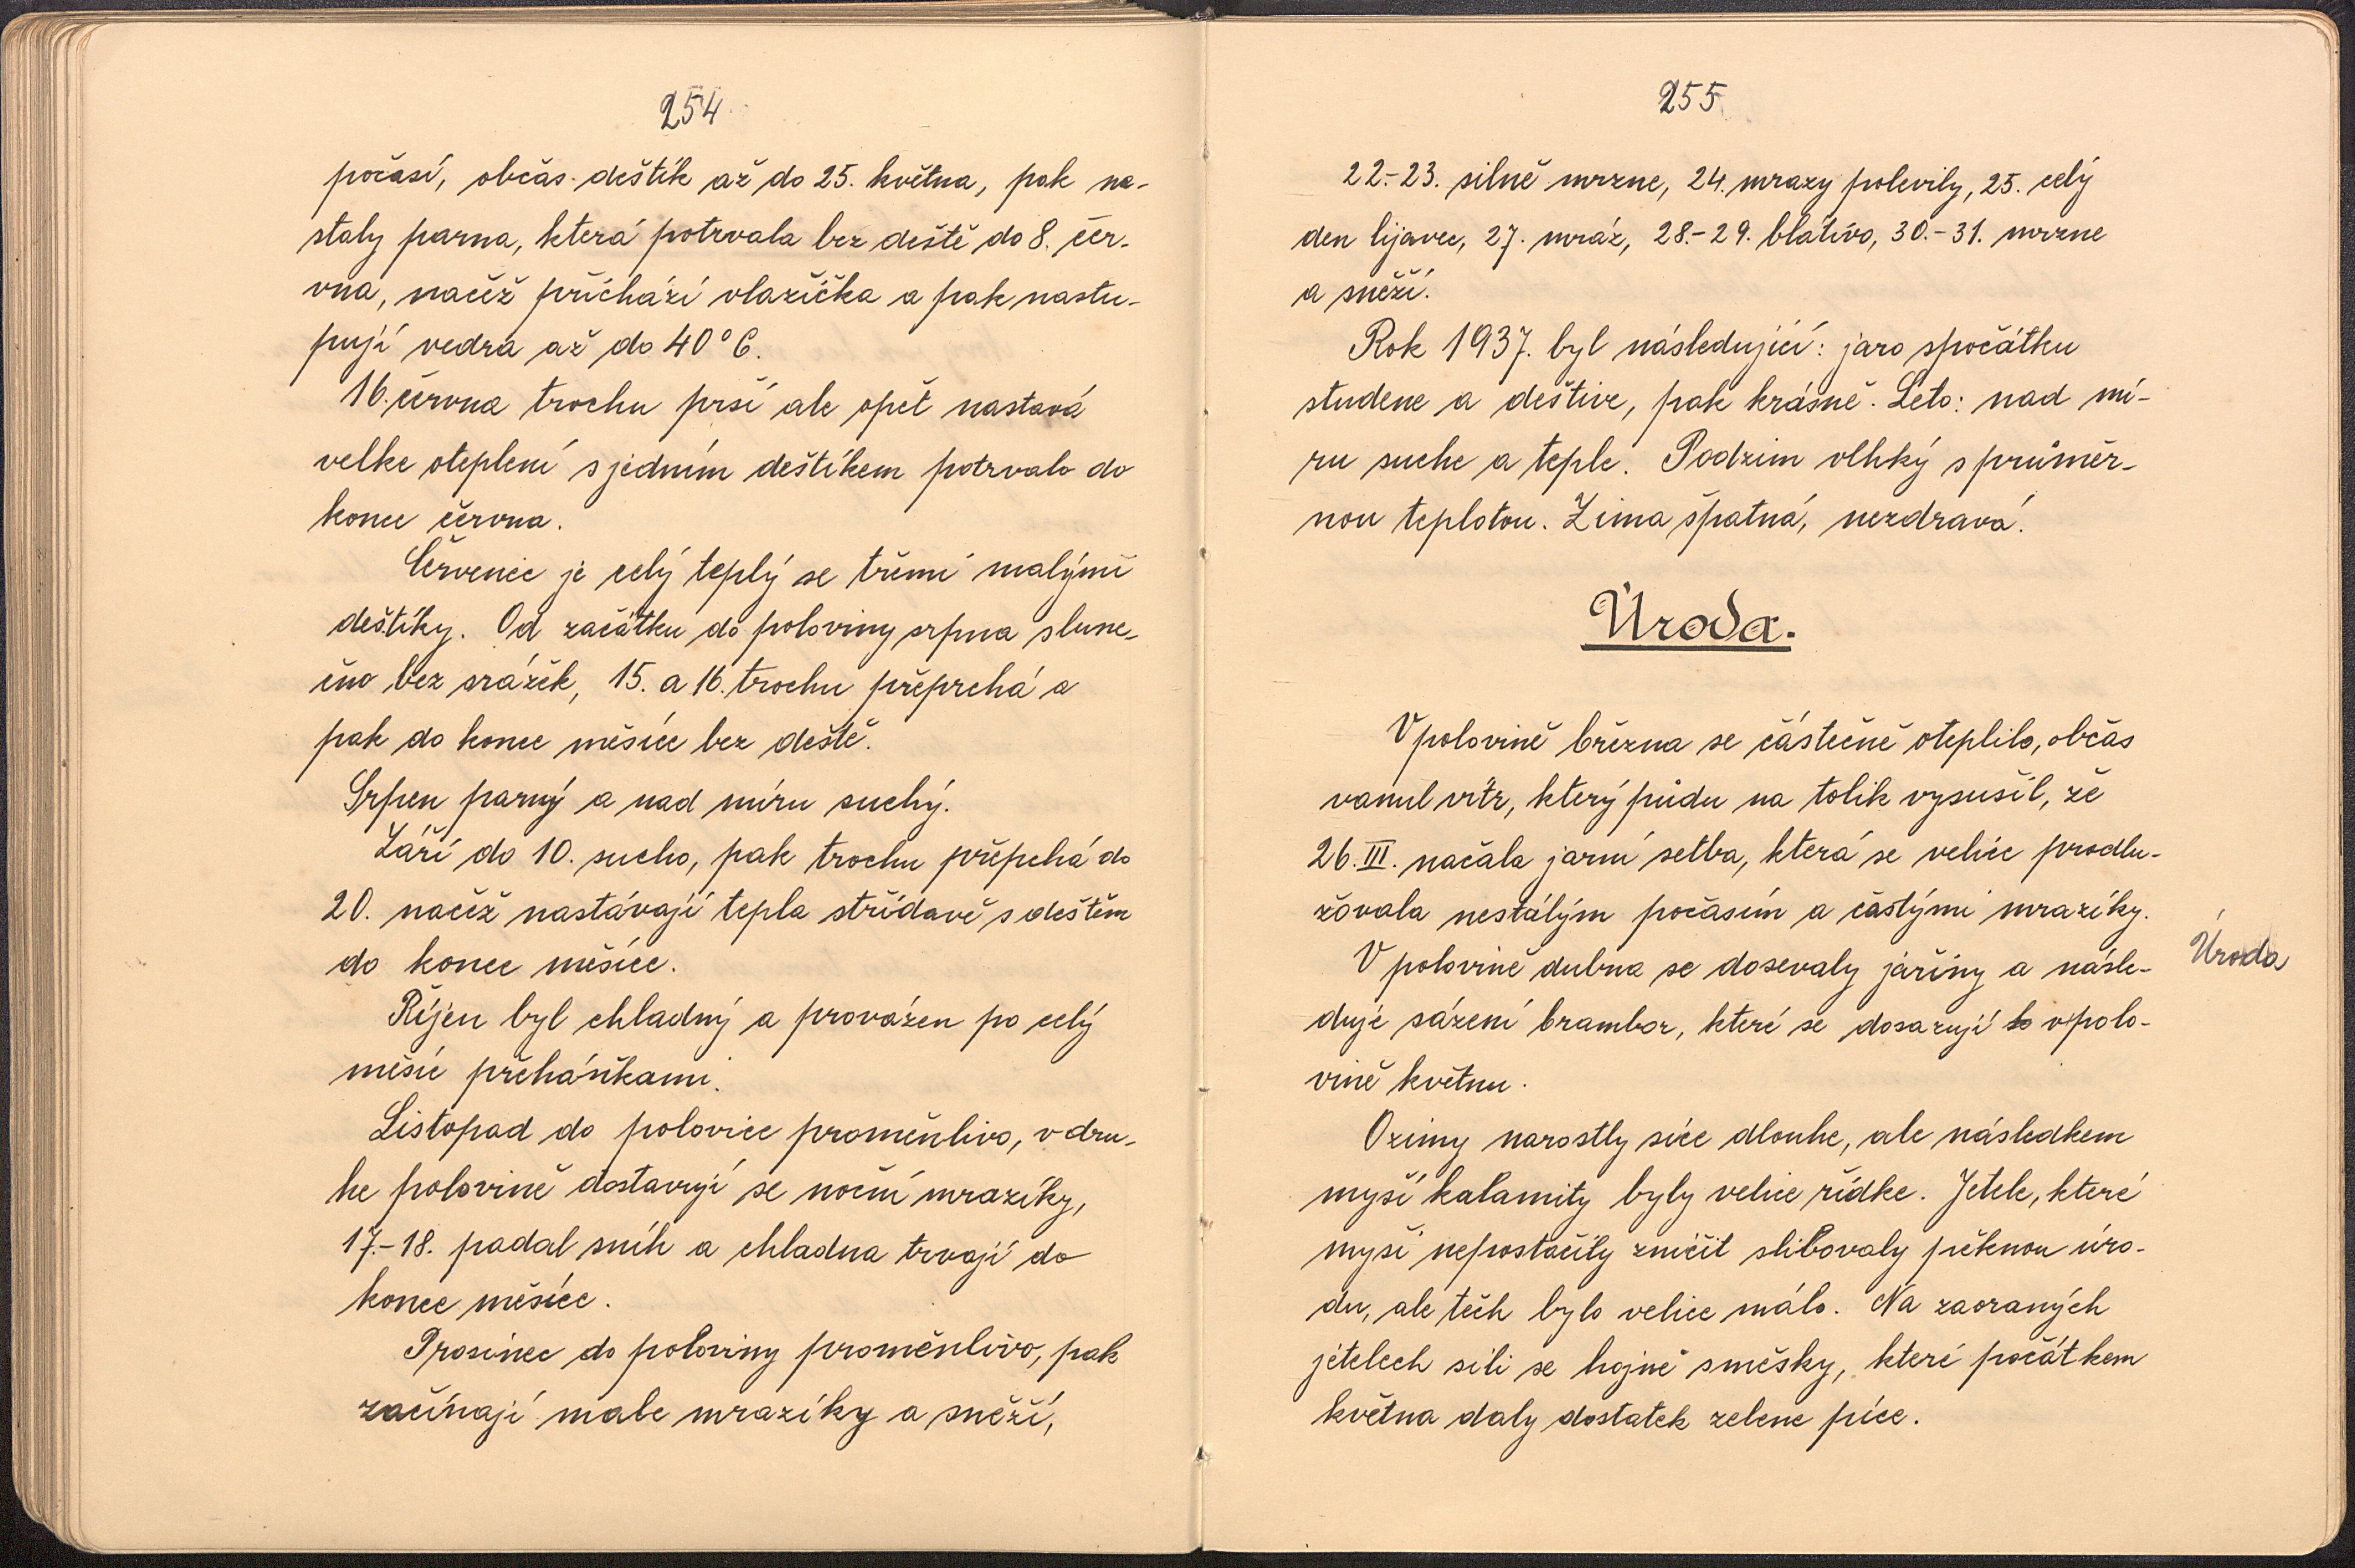 254
počasí, občas deštík až do 25. května, pak na-
staly parna, která potrvala bez deště do 8. čer-
vna, načež přichází vlažička a pak nastu-
pují vedra až do 40°C.
16. června trochu prší ale opět nastavá
velke oteplení s jedním deštíkem potrvalo do
konce června.
Červenec je celý teplý se třemi malými
deštíky. Od začátku do poloviny srpna slune-
čno bez srážek, 15. a 16. trochu přeprchá a
pak do konce měsíce bez deště.
Srpen parný a nad míru suchý.
Září do 10. sucho, pak trochu přepchá do
20. načež nastávají tepla střídavě s deštěm
do konce měsíce.
Říjen byl chladný a provázen po celý
měsíc přeháňkami.
Listopad do polovice proměnlivo, v dru-
he polovině dostavují se noční mrazíky,
17.-18. padal sníh a chladna trvají do
konce měsíce.
Prosinec do poloviny proměnlivo, pak
začínají male mrazíky a sněží,
255
22.-23. silně mrzne, 24. mrazy polevily, 25. celý
den lijavec, 27. mráz, 28.-29. blátivo, 30.-31. mrzne
a sněží.
Rok 1937. byl následující: jaro spočátku
studene a deštive, pak krásně. Léto: nad mí-
ru suche a teple. Podzim vlhký s průměr-
nou teplotou. Zima špatná, nezdravá.
Úroda.
V polovině března se částečně oteplilo, občas
vanul vítr, který půdu na tolik vysušil, že
26. III. načala jarní setba, která se velice prodlu-
žovala nestálým počasím a častými mrazíky.
V polovině dubna se dosevaly jařiny a násle-
Úroda
duje sázení brambor, které se dosazují to v polo-
vině květnu.
Ozimy narostly sice dlouhe, ale následkem
myší kalamity byly velice řídke. Jetele, které
myši nepostačily zničit slibovaly pěknou úro-
du, ale těch bylo velice málo. Na zaoraných
jetelech sili se hojně směsky, které počátkem
května daly dostatek zelene píce.